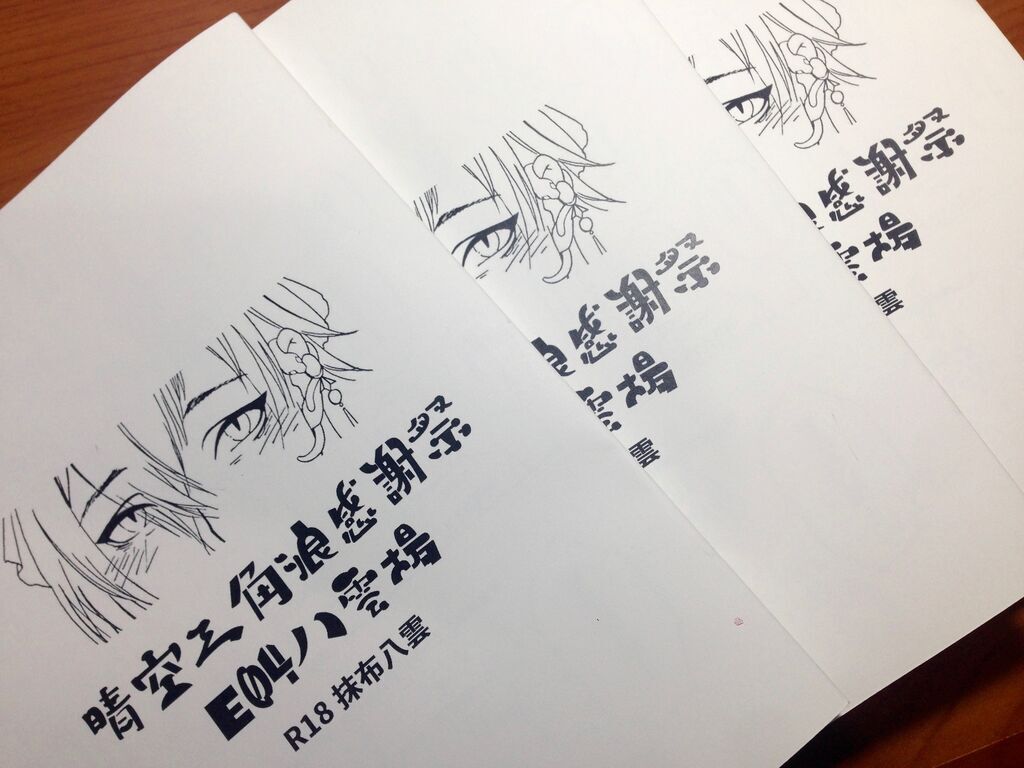 晴空三角浪感謝祭
E04八雲場
R18 抹布八雲
浪感謝祭
雲場
雲
感謝祭
雲場
雲